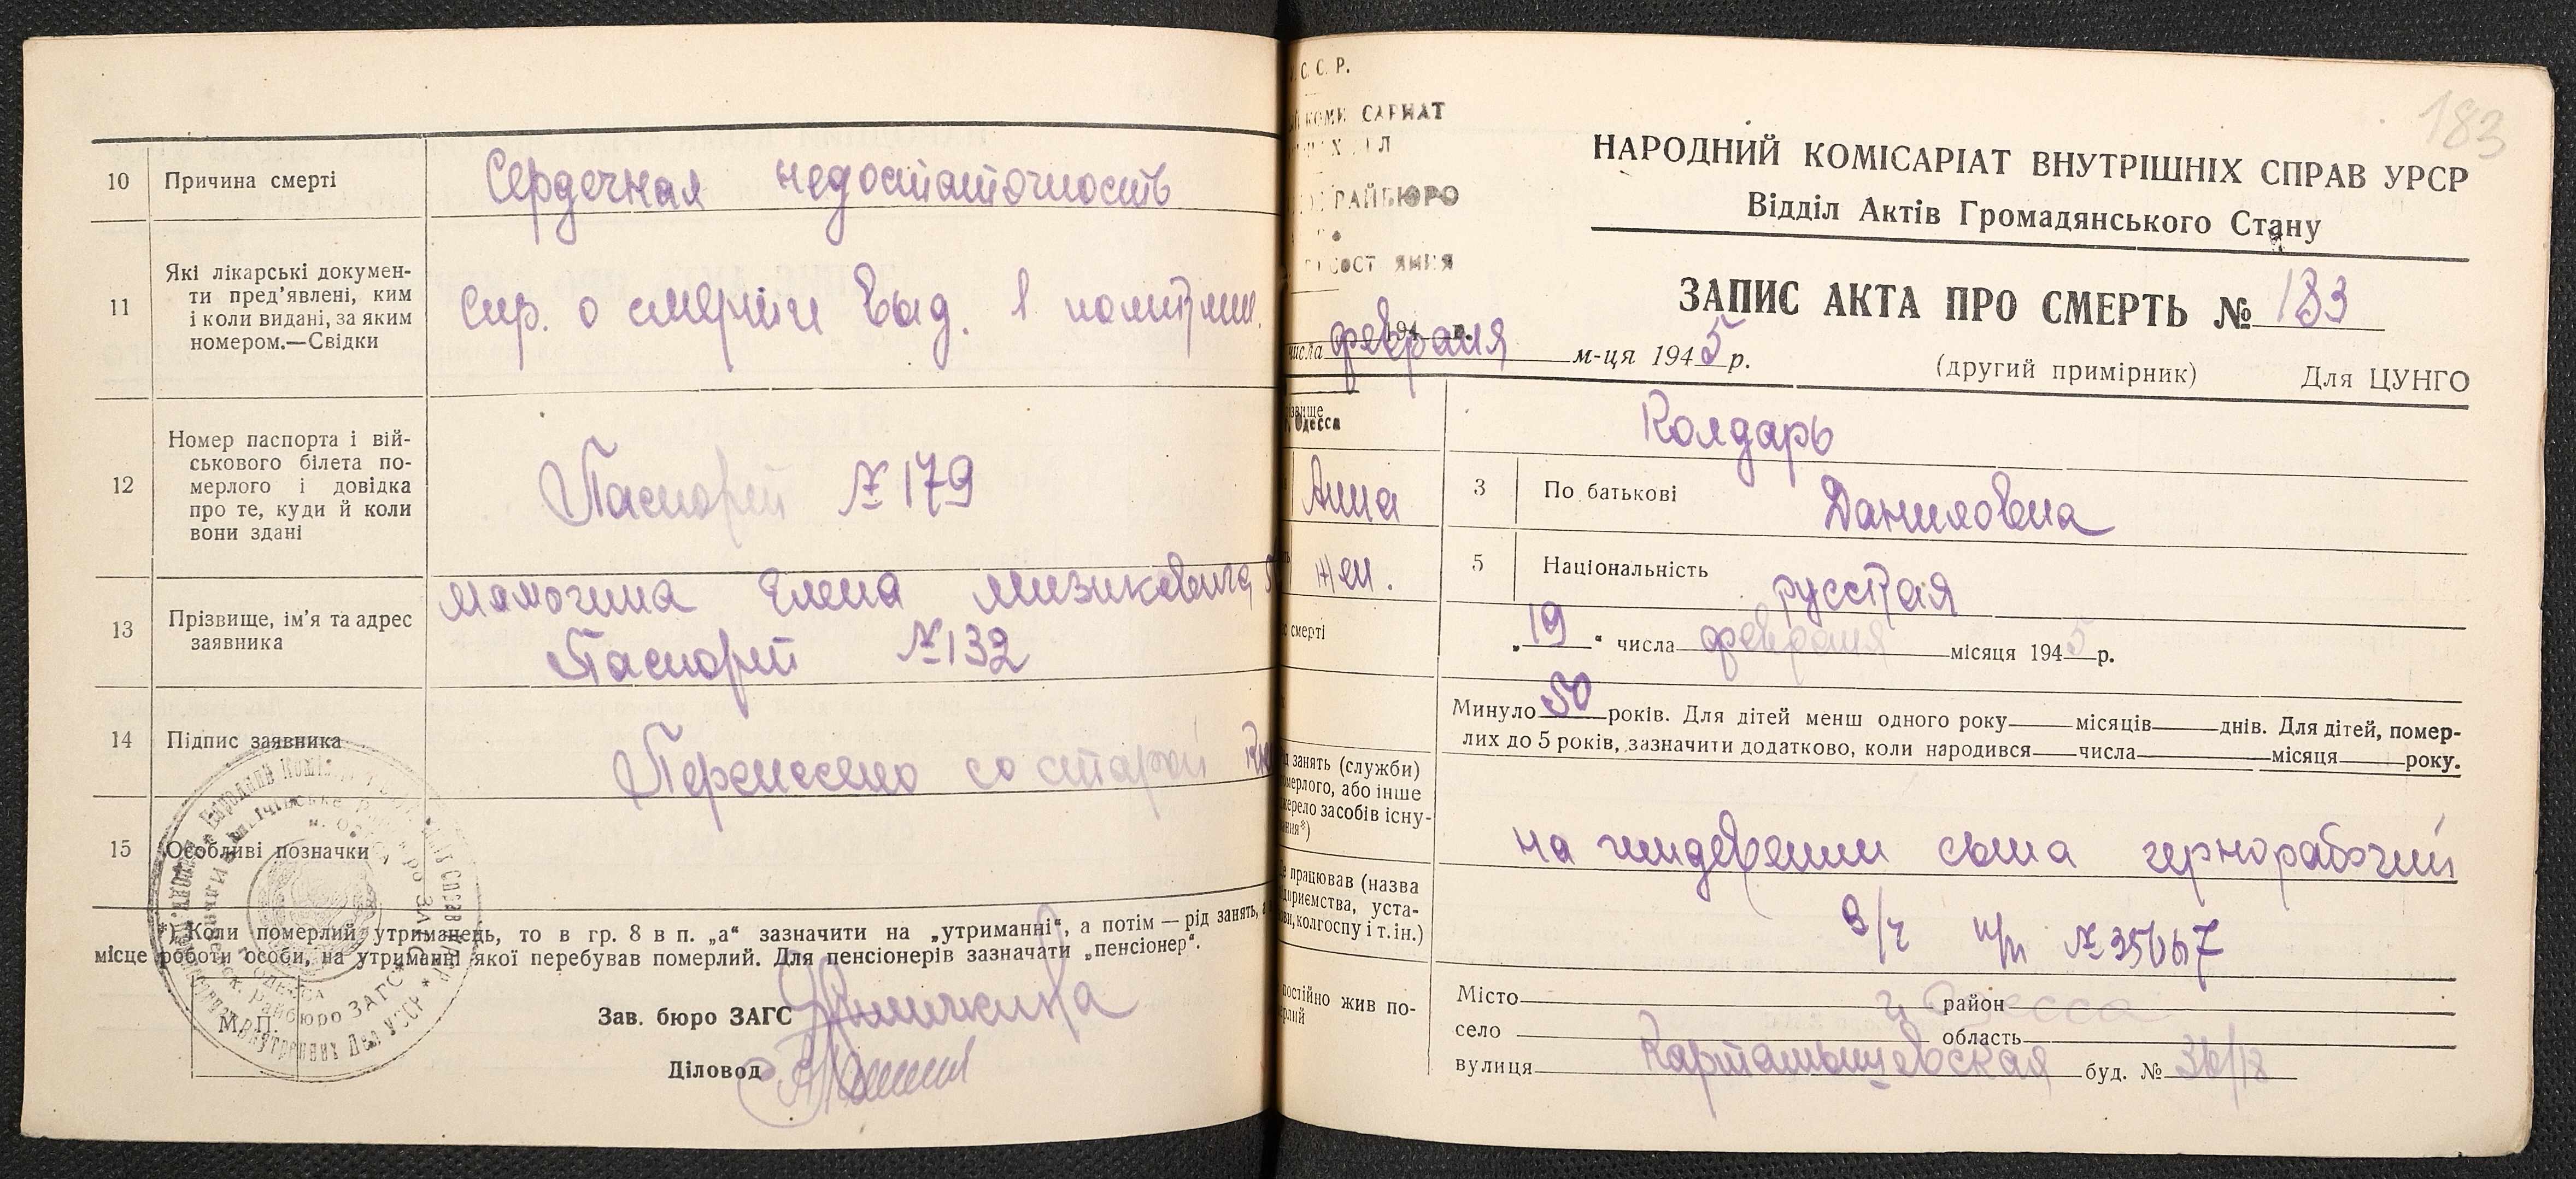 10 Причина смерті Сердечная недостаточность
11 Які лікарські докумен-
ти пред’явлені, ким
і коли видані, за яким
номером.—Свідки
Спр. о смерти выд.
12 Номер паспорта і вій-
ськового білета по-
мерлого і довідка
про те, куди й коли
вони здані
Паспорт № 179
13 Прізвище, ім’я та адрес
заявника
Елена
Паспорт № 132
14 Підпис заявника
Перенесено со старой
15 Особливі позначки
*) Коли померлий утриманець, то в гр. 8 в п. „а“ зазначити на „утриманні“, а потім — рід занять,
місце роботи особи, на утриманні якої перебував померлий. Для пенсіонерів зазначати „пенсіонер“.
М. П.
Зав. бюро ЗАГС
Діловод
183
С. С. Р.
САРИАТ
РАЙБЮРО
НАРОДНИЙ КОМІСАРІАТ ВНУТРІШНІХ СПРАВ УРСР
Відділ Актів Громадянського Стану
ЗАПИС АКТА ПРО СМЕРТЬ № 183
числа февраля м-ця 1945 р. (другий примірник) Для ЦУНГО
Одесса
Колдарь
Анна 3 По батькові Даниловна
жен. 5 Національність русская
смерті „19“ числа февраля місяця 1945 р.
Минуло 50 років. Для дітей менш одного року місяців днів. Для дітей, помер-
лих до 5 років, зазначити додатково, коли народився числа місяця року.
занять (служби)
мерлого, або інше
жерело засобів існу-
вання*)
на иждевении сына чернорабочий
працював (назва
приємства, уста-
ви, колгоспу і т. ін.)
В/ч п/п
постійно жив по-
мерлий
Місто район г Одесса
село область
вулиця Картамышевская буд. № 36/18